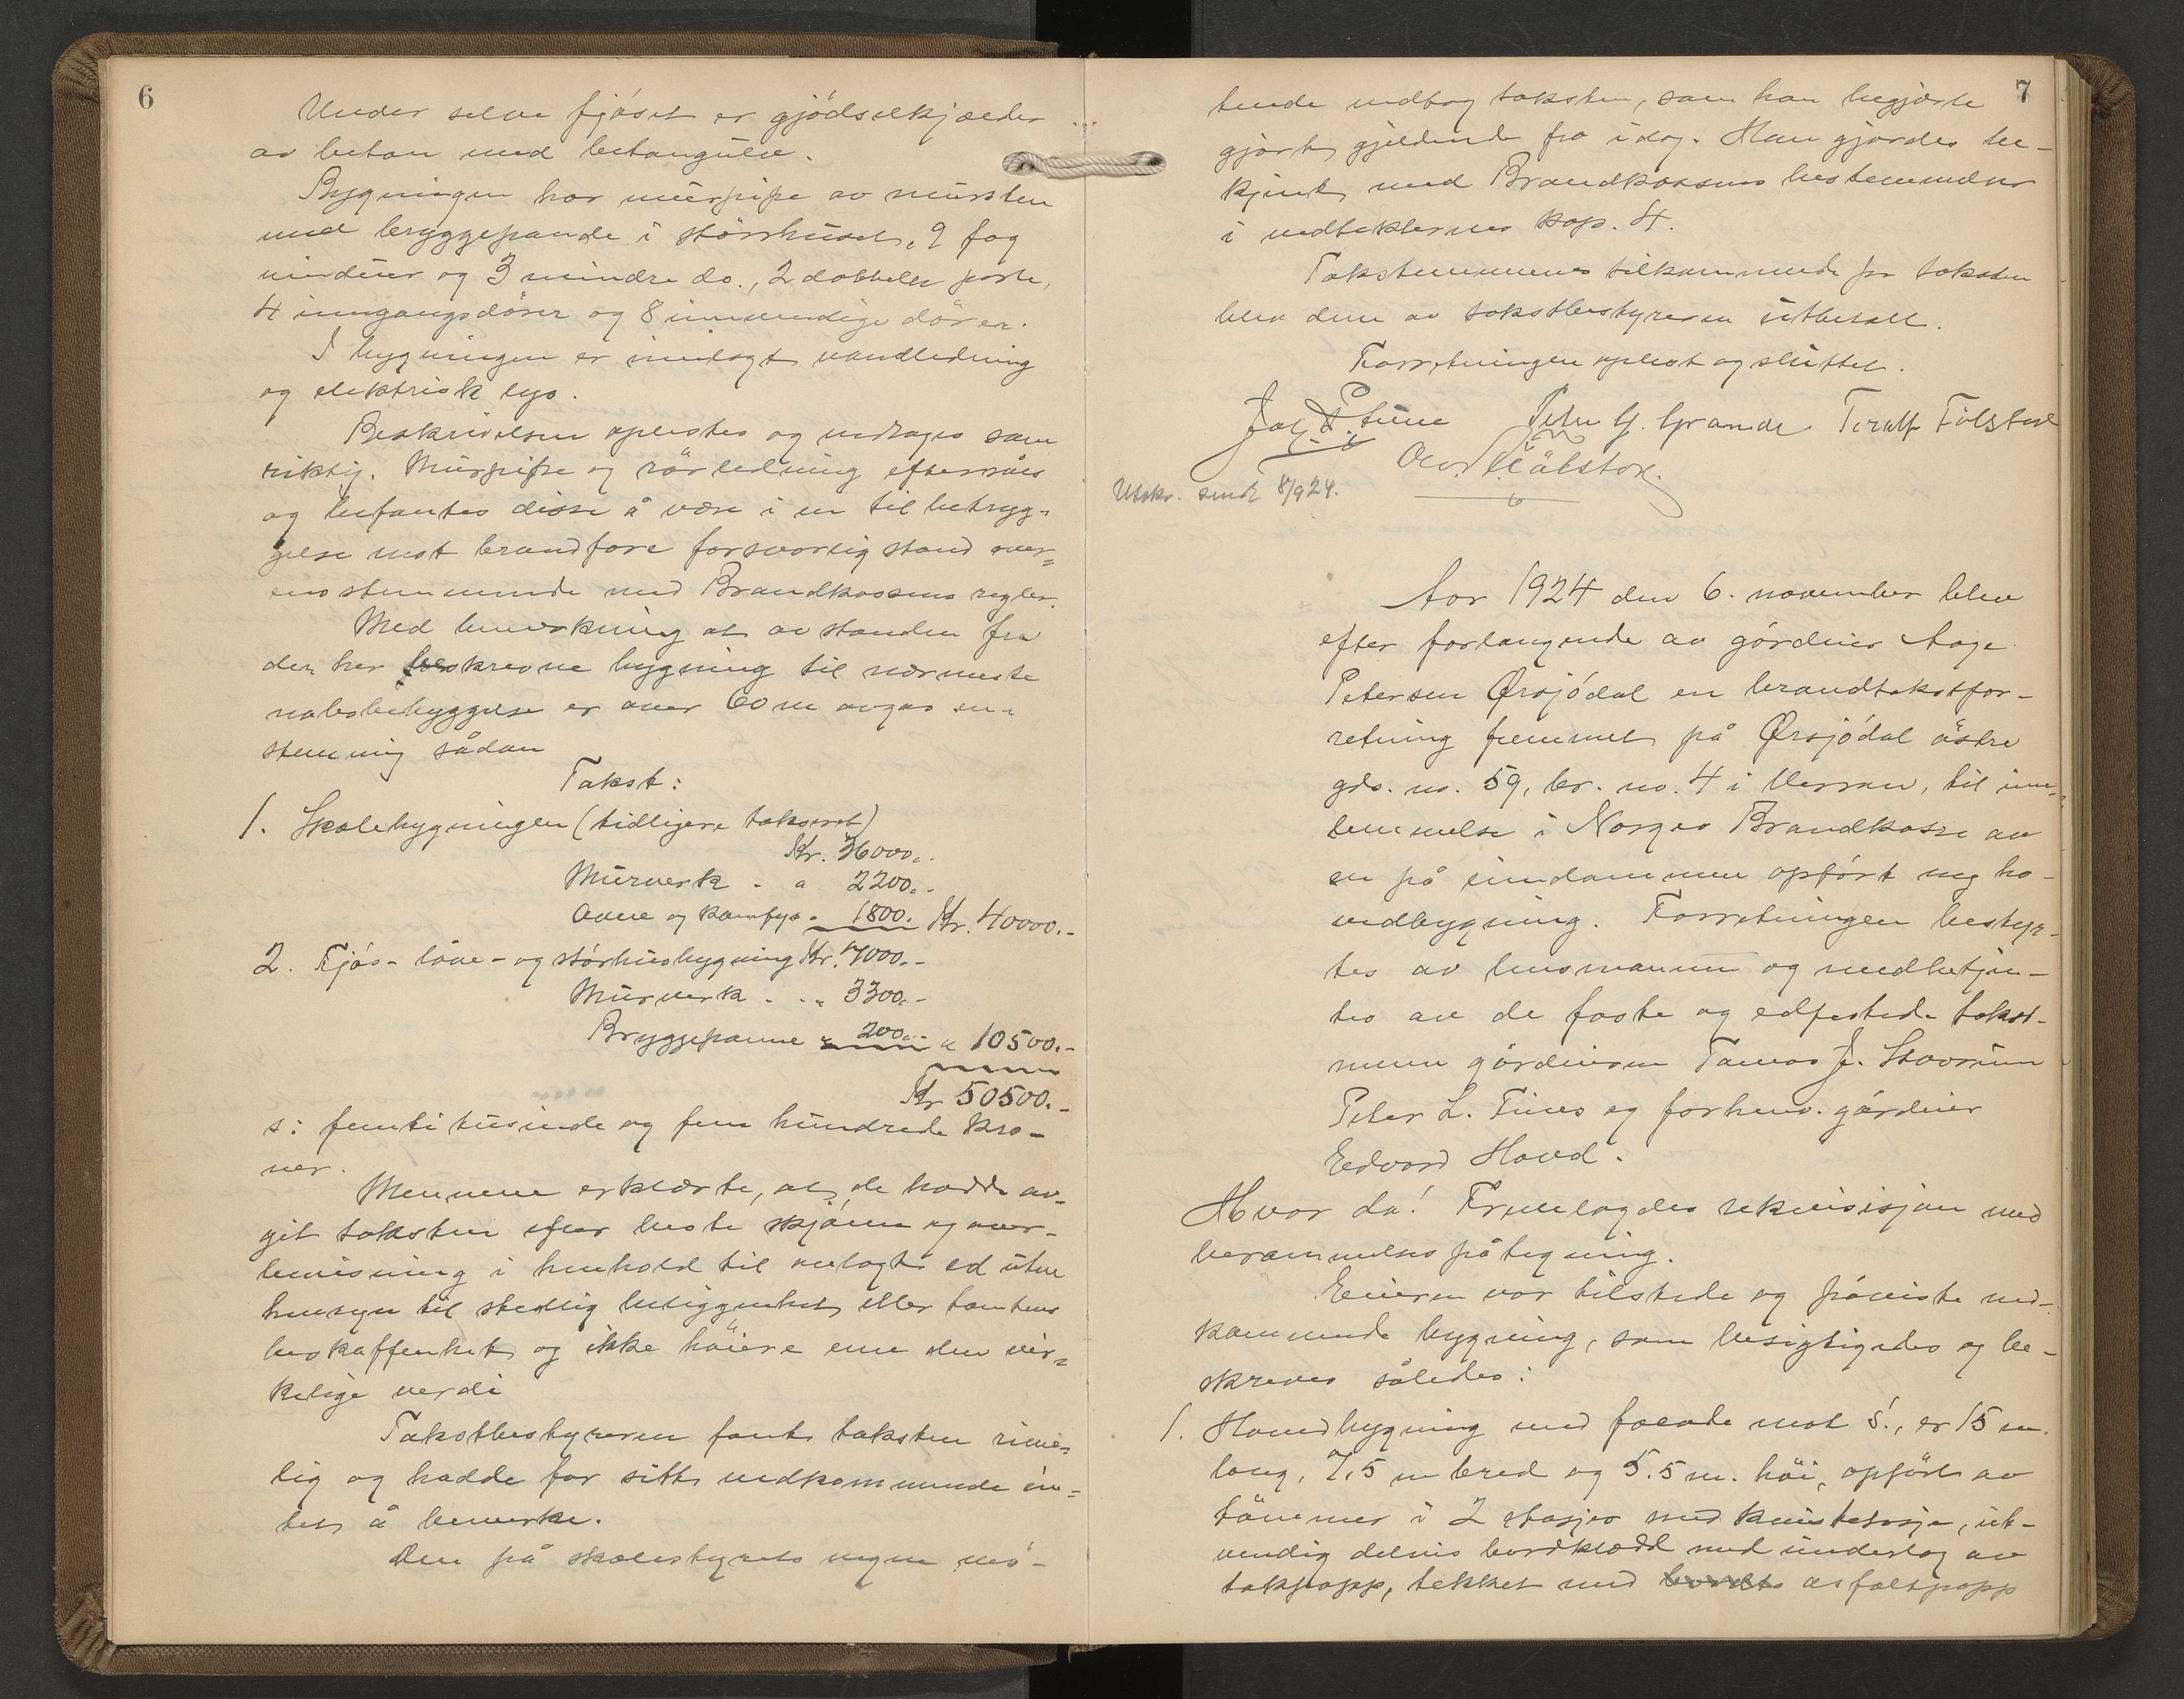 6
Under selve fjöset er gjödselkjelder
av betong med betonggulv.
Bygningen har murpipe av mursten
med bryggepande i störrhuset, 9 fag
vinduer og 3 mindre do., 2 dobbelte porte,
4 inngangsdörer og 8 innvendige dörer.
I bygningen er innlagt vandledning
og elektrisk lys.
Beskrivelsen oplestes og vedtages som
riktig. Murpipe og rörledning eftersåes
og befantes disse å være i en til betryg-
gelse mot brandfare forsvarlig stand over-
ensstemmende med Brandkassens regler.
Med bemerkning at avstanden fra
den her beskrevne bygning til nærmeste
nabobebyggelse er over 60 m avgas en-
stemmig sådan
Takst:
1. Skolebygningen (tidligere taksert)
Kr. 36000.-
Murverk - " 2200.-
Ovne og komfyr " 1800. Kr. 40000.-
2. Fjös- låve- og störhusbygning Kr. 7000.-
Murverk - " 3300.-
Bryggepanne " 200.- " 10500.-
Kr 50500.-
s: femti tusinde og fem hundrede kro-
ner.
Mennene erklærte, at de hadde av-
git taksten efter beste skjönn og over-
bevisning i henhold til avlagt ed uten
hensyn til stedlig beliggenhet eller tomtens
beskaffenhet og ikke höiere enn den vir-
kelige verdi
Takstbestyreren fant taksten rime-
lig og hadde for sitt vedkommende in-
tet å bemerke.
Den på skolestyrets vegne mö-
7
tende vedtog taksten, som han begjærte
gjort gjeldende fra idag. Han gjordes be-
kjent med Brandkassens bestemmelser
i vedtekternes kap. 4.
Takstmennenes tilkommende for taksten
blev dem av takstbestyreren utbetalt.
Forretningen oplest og sluttet.
Peter G. Grande Toralf Fölstad
Utskr. sendt 8/9 24.
Aar 1924 den 6. november blev
efter forlangende av gårdeier Aage
Petersen Ørsjödal en brandtakstfor-
retning fremmet på Ørsjödal östre
gds. no. 59, br. no. 4 i Verran, til inn-
lemmelse i Norges Brandkasse av
en på eiendommen opfört ny ho-
vedbygning. Forretningen bestyr-
tes av lensmannen og medbetjen-
tes av de faste og edfestede takst-
menn gårdeierne Tomas J. Stavrum
Peter L. Tines og forhenv. gårdeier
Edvard Hovd.
Hvor da! Fremlagdes rekvisisjon med
berammelsespåtegning.
Eieren var tilstede og påviste ved-
kommende bygning, som besigtigedes og be-
skreves således:
1. Hovedbygning med facade mot S., er 15 m.
lang, 7,5 m bred og 5.5 m. höi, opfört av
tömmer i 2 etasjer med kvistetasje, ut-
vendig delvis bordklædd med underlag av
takpapp, tekket med bordt asfaltpapp